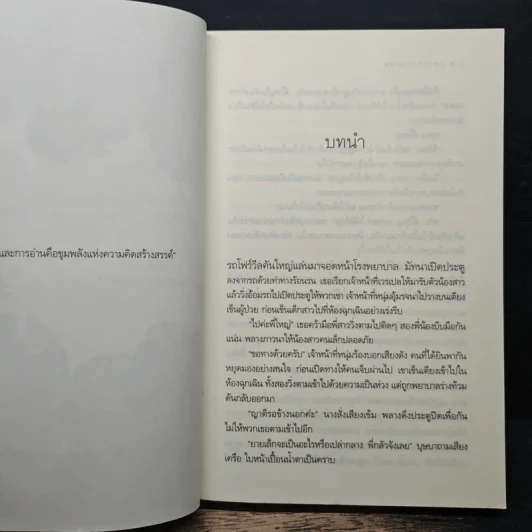 และการอ่านคือขุมพลังแห่งความคิดสร้างสรรค์"
บทนำ
รถโฟร์วีลคันใหญ่แล่นมาจอดหน้าโรงพยาบาล มัทนาเปิดประตู
ลงจากรถด้วยท่าทางร้อนรน เธอเรียกเจ้าหน้าที่เวรเปลให้มารับตัวน้องสาว
แล้ววิ่งอ้อมรถไปเปิดประตูให้พวกเขา เจ้าหน้าที่หนุ่มอุ้มรจนาไปวางบนเตียง
เข็นผู้ป่วย ก่อนเข็นเด็กสาวไปที่ห้องฉุกเฉินอย่างเร่งรีบ
"ไปค่ะพี่ใหญ่" เธอคว้ามือพี่สาววิ่งตามไปติดๆ สองพี่น้องบีบมือกัน
แน่น พลางภาวนาให้น้องสาวคนเล็กปลอดภัย
"ขอทางด้วยครับ" เจ้าหน้าที่หนุ่มร้องบอกเสียงดัง คนที่ได้ยินพากัน
หยุดมองอย่างสนใจ ก่อนเปิดทางให้คนเจ็บผ่านไป เขาเข็นเตียงเข้าไปใน
ห้องฉุกเฉิน ทั้งสองวิ่งตามเข้าไปด้วยความเป็นห่วง แต่ถูกพยาบาลร่างท้วม
ดันกลับออกมา
"ญาติรอข้างนอกค่ะ" นางสั่งเสียงเข้ม พลางดึงประตูปิดเพื่อกัน
ไม่ให้พวกเธอตามเข้าไปอีก
"ยายเล็กจะเป็นอะไรหรือเปล่ากลาง พี่กลัวจังเลย" บุษบาถามเสียง
เครือ ใบหน้าเปื้อนน้ำตาเป็นคราบ